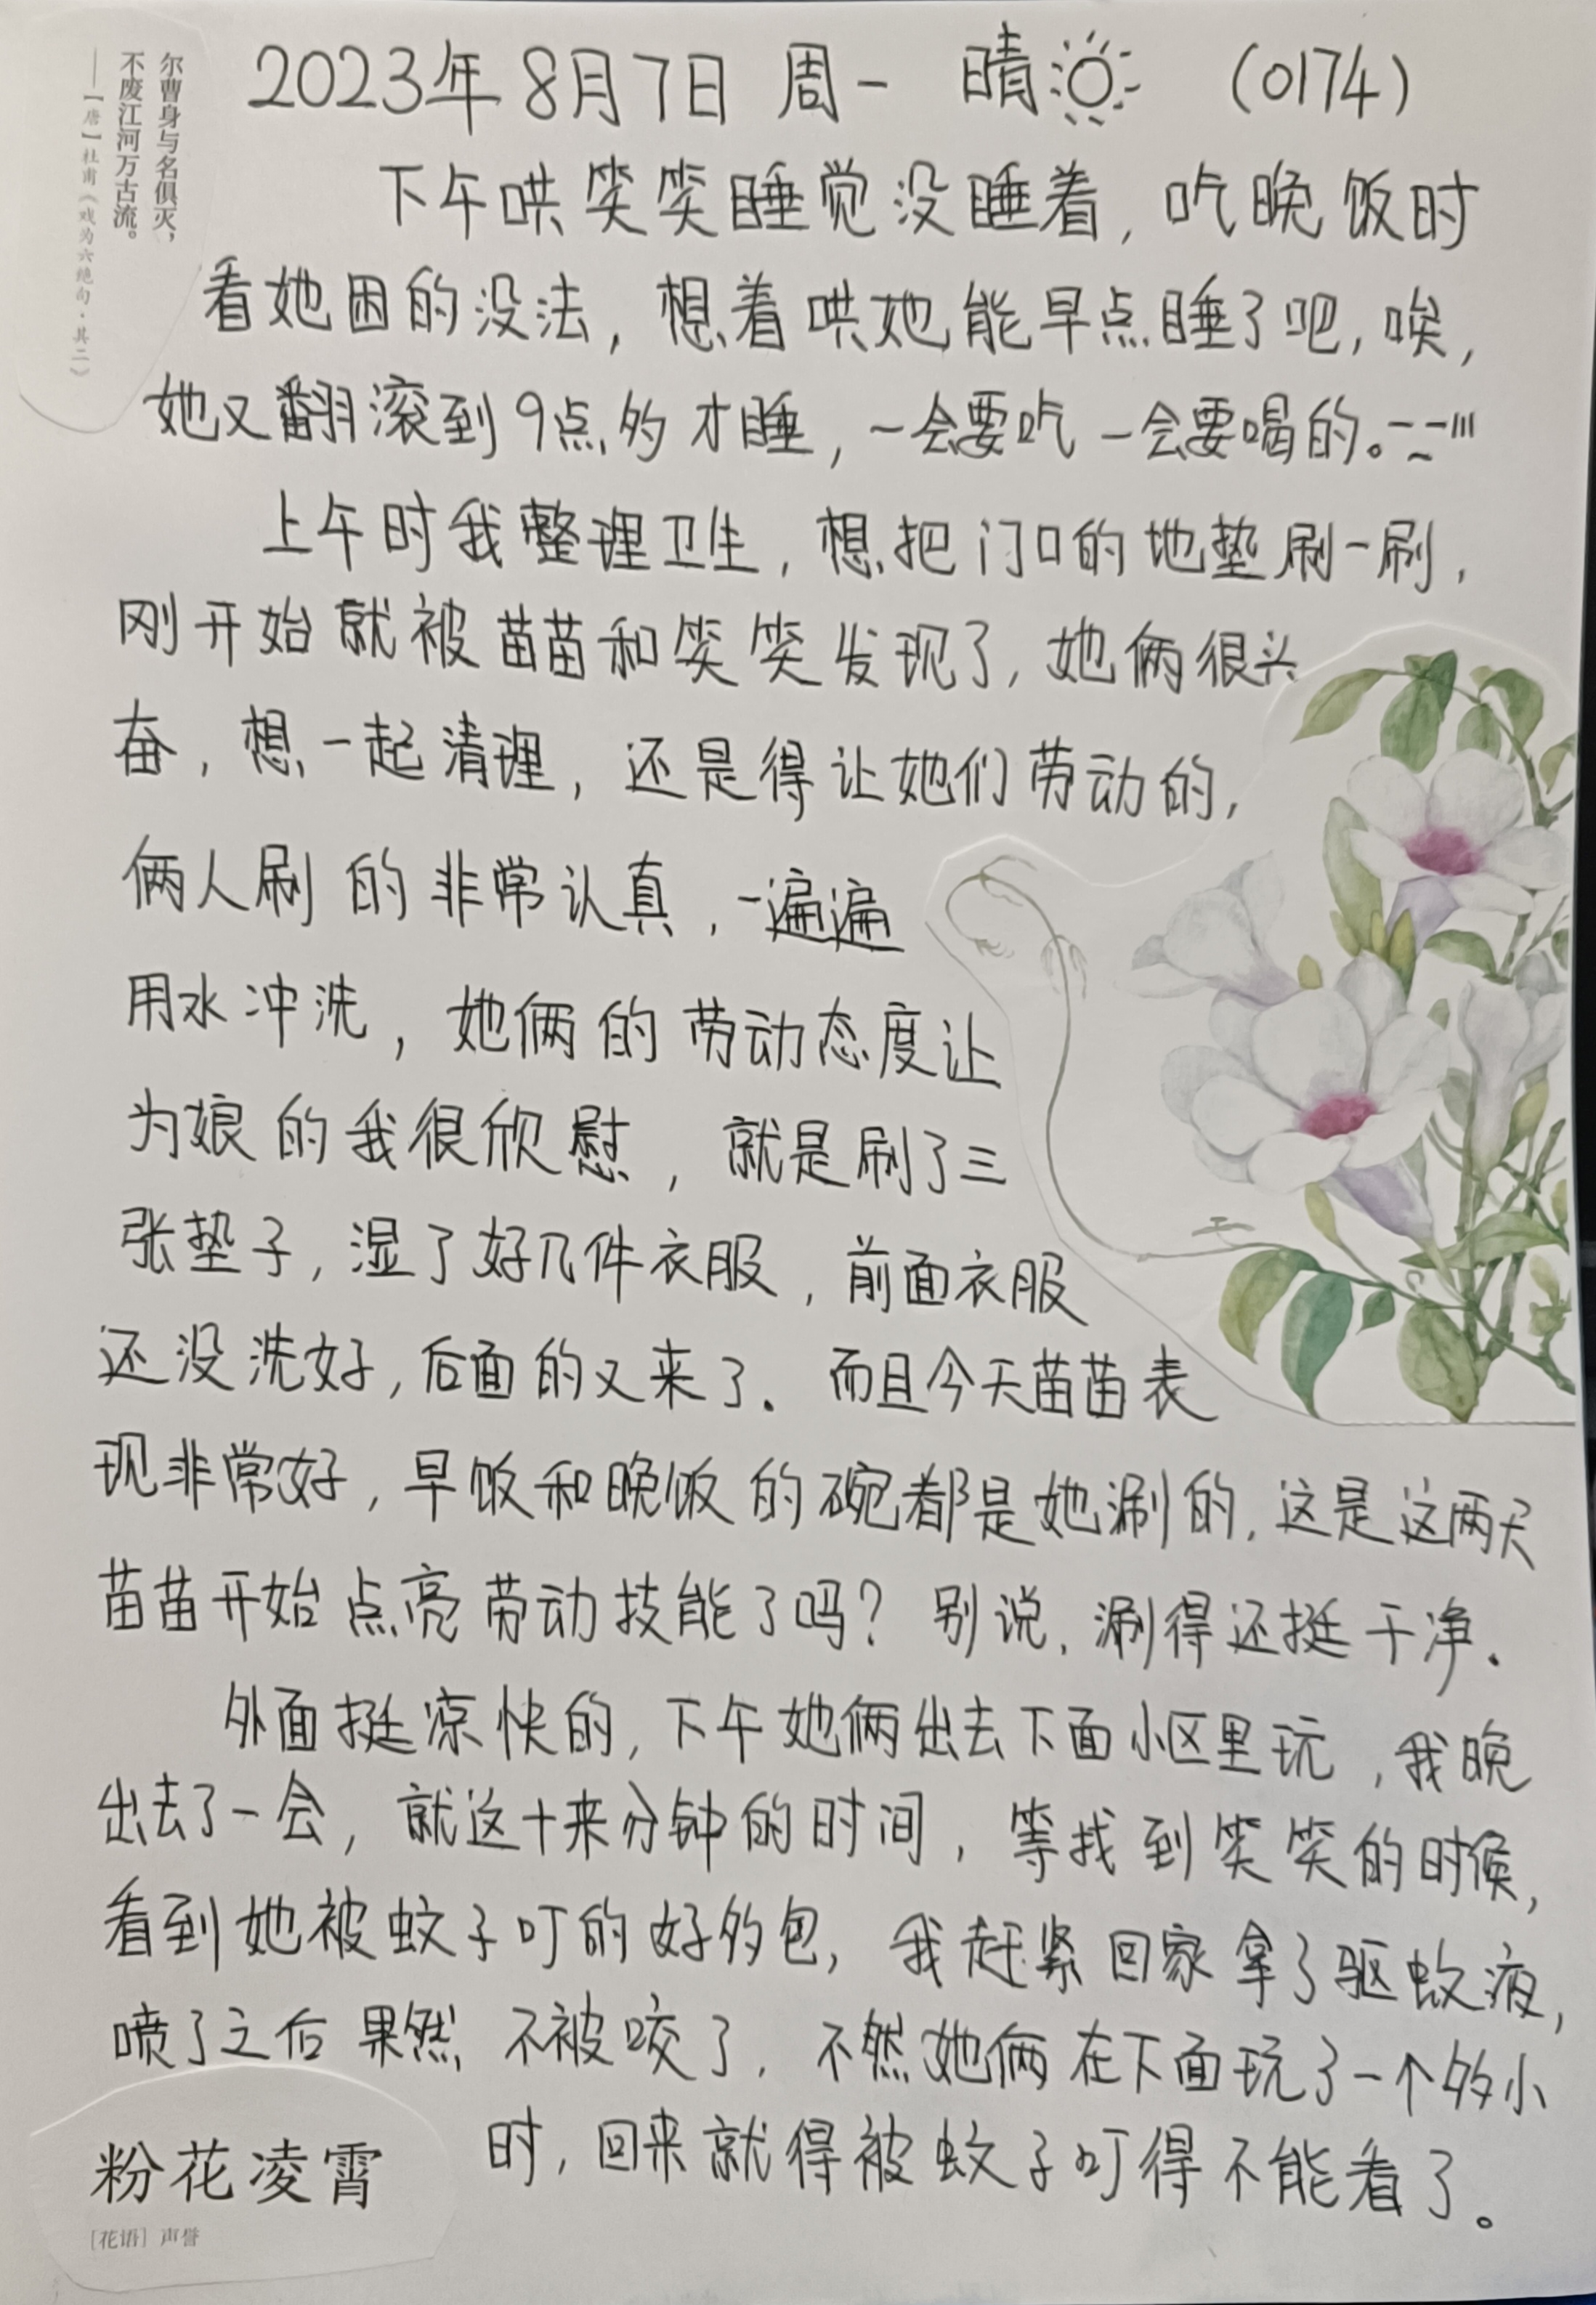 尔曹身与名俱灭，
不废江河万古流。
——【唐】杜甫《戏为六绝句·其二》
2023年8月7日 周一 晴 （0174）
下午哄笑笑睡觉没睡着，吃晚饭时
看她困的没法，想着哄她能早点睡了吧，唉，
她又翻滚到9点多才睡，一会要吃一会要喝的。
上午时我整理卫生，想把门口的地垫刷一刷，
刚开始就被苗苗和笑笑发现了，她俩很兴
奋，想一起清理，还是得让她们劳动的，
俩人刷的非常认真，一遍遍
用水冲洗，她俩的劳动态度让
为娘的我很欣慰，就是刷了三
张垫子，湿了好几件衣服，前面衣服
还没洗好，后面的又来了。而且今天苗苗表
现非常好，早饭和晚饭的碗都是她涮的，这是这两天
苗苗开始点亮劳动技能了吗？别说，涮得还挺干净。
外面挺凉快的，下午她俩出去下面小区里玩，我晚
出去了一会，就这十来分钟的时间，等找到笑笑的时候，
看到她被蚊子叮的好多包，我赶紧回家拿了驱蚊液，
喷了之后果然不被咬了，不然她俩在下面玩了一个多小
时，回来就得被蚊子叮得不能看了。
粉花凌霄
［花语］声誉